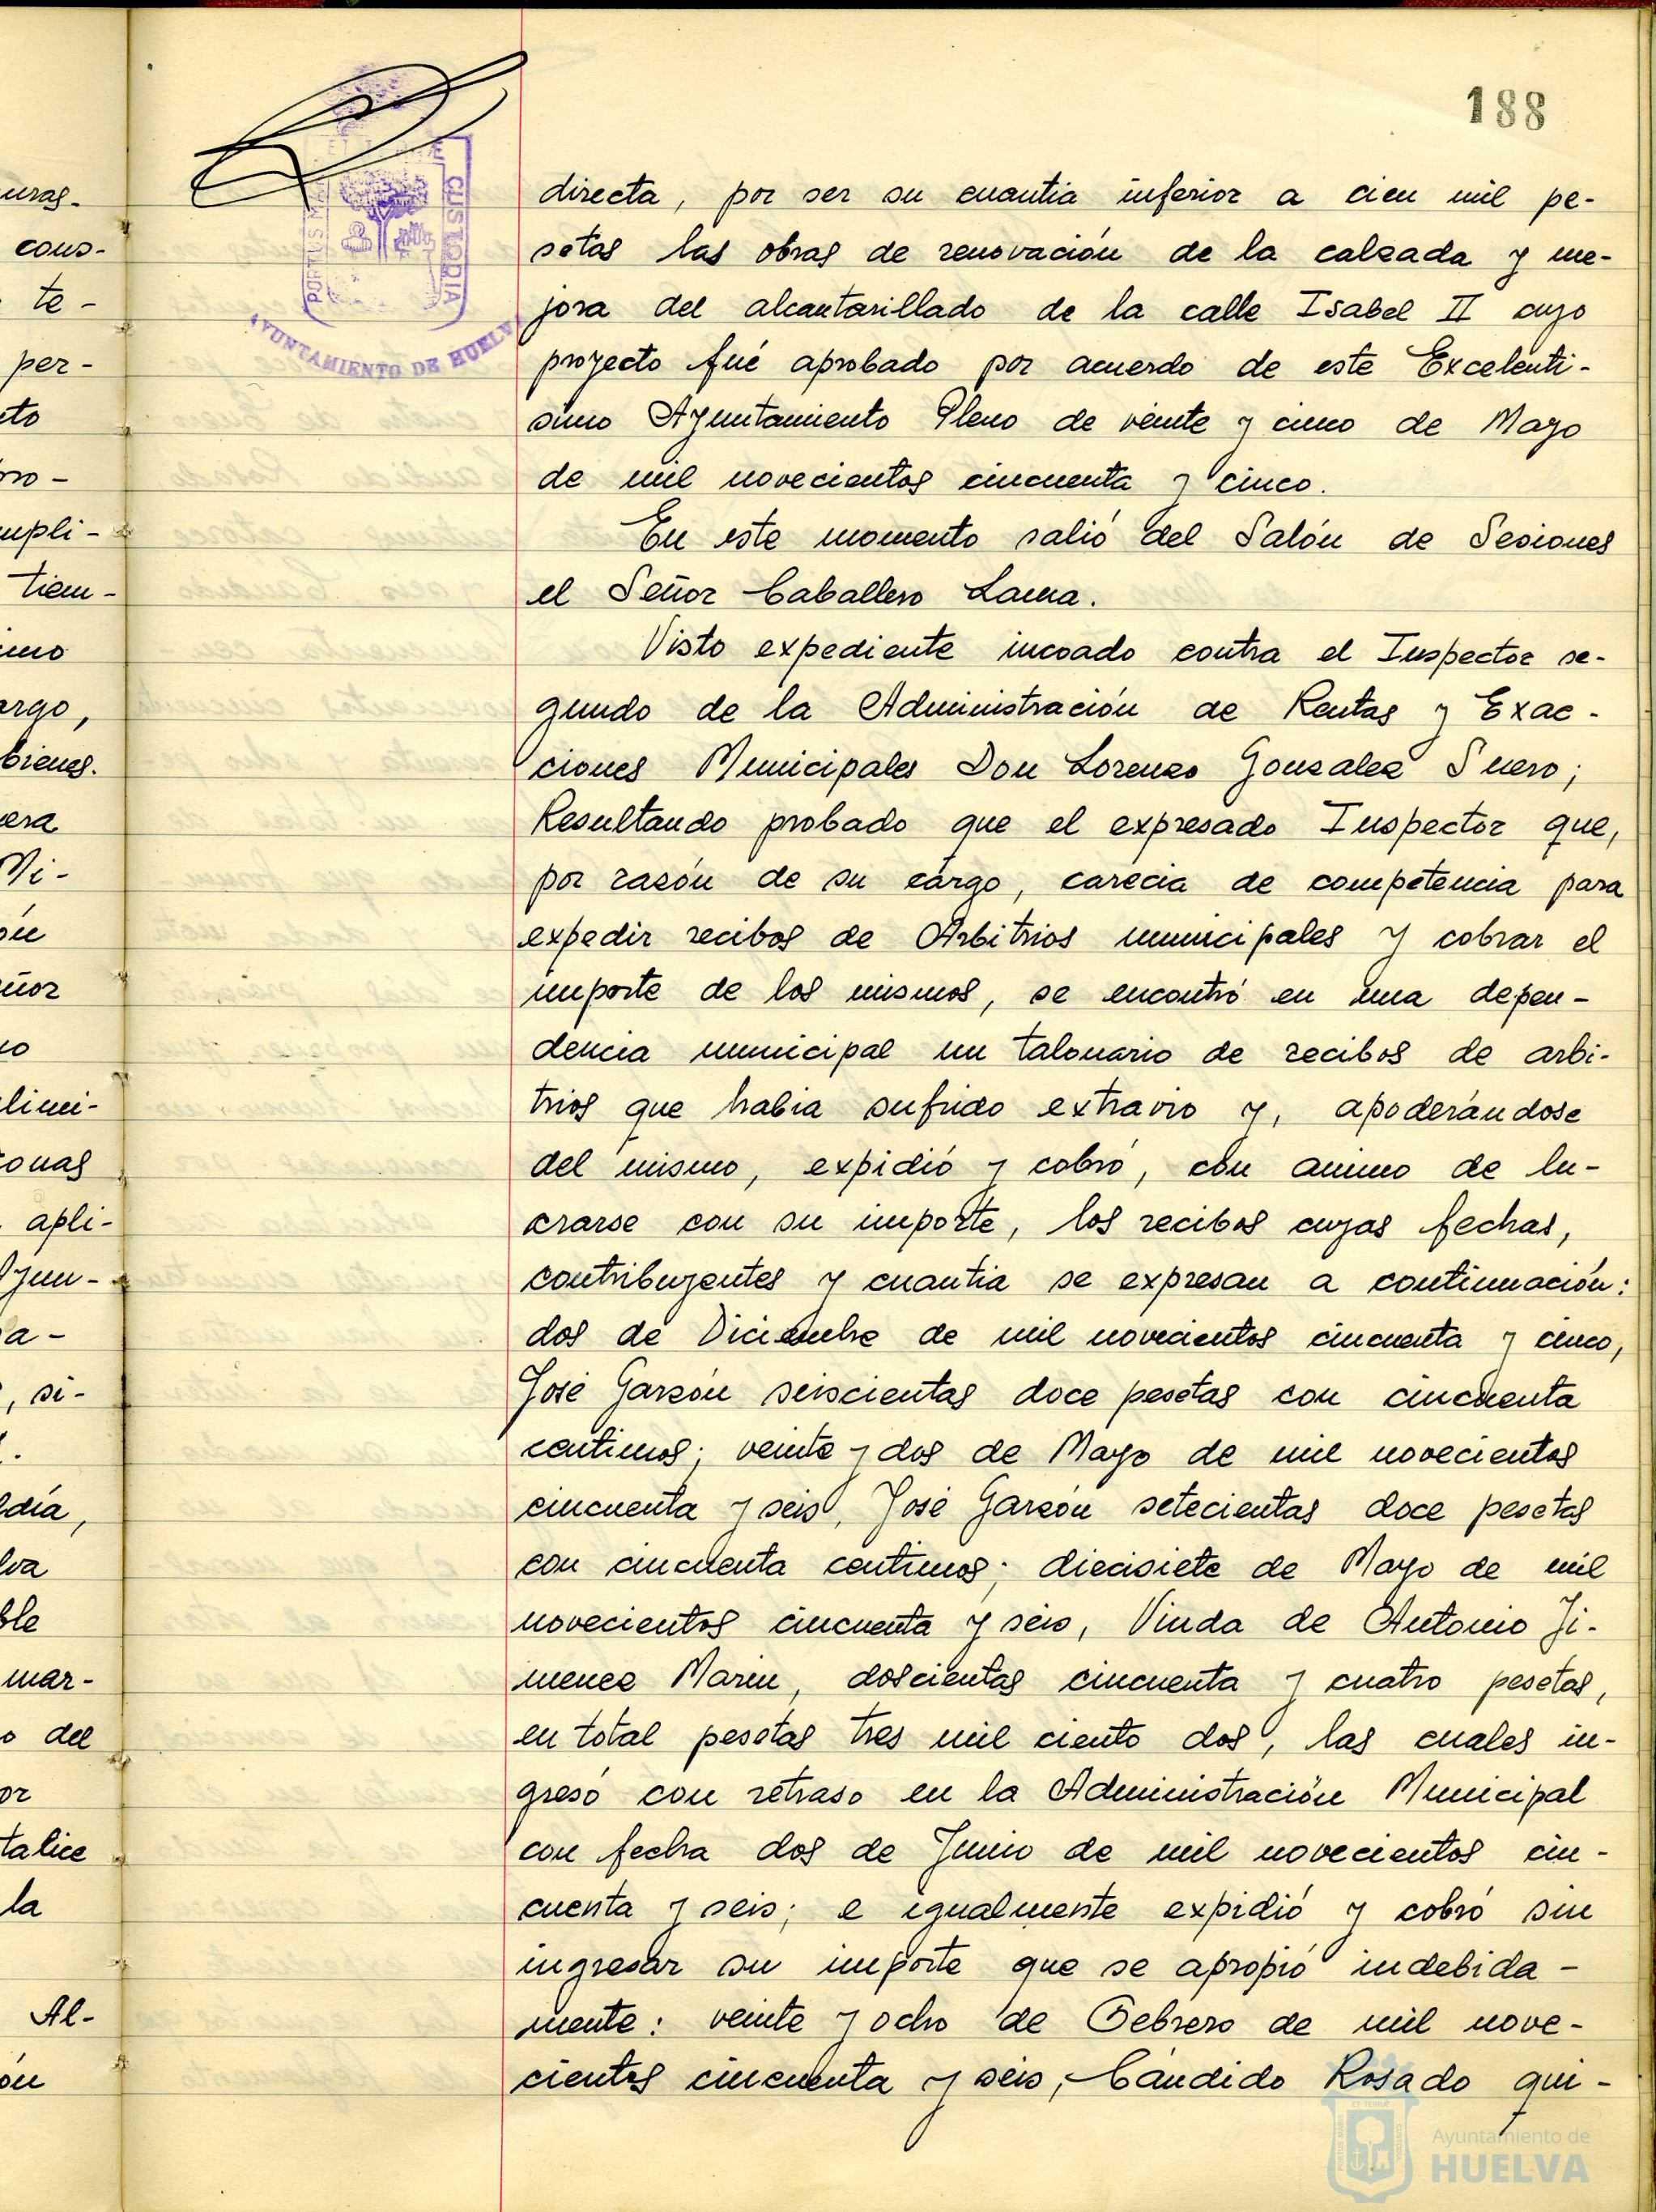 188
PORTUS MARIS
ET TERRÆ
CUSTODIA
AYUNTAMIENTO DE HUELVA
directa, por ser su cuantia inferior a cien mil pe-
setas las obras de renovación de la calzada y me-
jora del alcantarillado de la calle Isabel II cuyo
proyecto fué aprobado por acuerdo de este Excelenti-
simo Ayuntamiento Pleno de veinte y cinco de Mayo
de mil novecientos cincuenta y cinco.
En este momento salió del Salón de Sesiones
el Señor Caballero Lama.
Visto expediente incoado contra el Inspector se-
gundo de la Administración de Rentas y Exac-
ciones Municipales Don Lorenzo Gonzalez Suero;
Resultando probado que el expresado Inspector que,
por razón de su cargo, carecia de competencia para
expedir recibos de Arbitrios municipales y cobrar el
importe de los mismos, se encontró en una depen-
dencia municipal un talonario de recibos de arbi-
trios que habia sufrido extravio y, apoderándose
del mismo, expidió y cobró, con animo de lu-
crarse con su importe, los recibos cuyas fechas,
contribuyentes y cuantia se expresan a continuación:
dos de Diciembre de mil novecientos cincuenta y cinco,
José Garzón seiscientas doce pesetas con cincuenta
centimos; veinte y dos de Mayo de mil novecientos
cincuenta y seis, José Garzón setecientas doce pesetas
con cincuenta centimos; diecisiete de Mayo de mil
novecientos cincuenta y seis, Viuda de Antonio Ji-
menez Marin, doscientas cincuenta y cuatro pesetas,
en total pesetas tres mil ciento dos, las cuales in-
gresó con retraso en la Administración Municipal
con fecha dos de Junio de mil novecientos cin-
cuenta y seis; e igualmente expidió y cobró sin
ingresar su importe que se apropió indebida-
mente: veinte y ocho de Febrero de mil nove-
cientos cincuenta y seis, Cándido Rosado qui-
uras.
cons-
te-
per-
eto
pro-
umpli-
tiem-
imo
argo,
bienes.
era
Mi-
ón
eñor
no
limi-
onas
apli-
Ayun-
a-
, si-
ldía,
lva
ble
mar-
o del
or
talice
la
Al-
ón
Ayuntamiento de
HUELVA